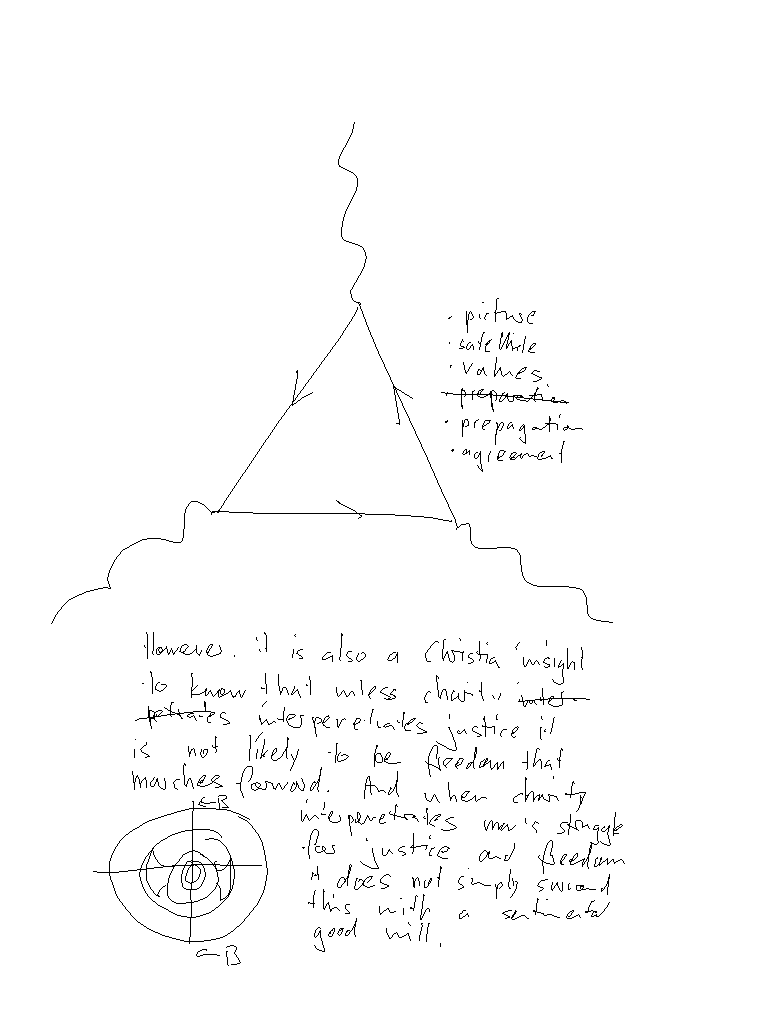 · picture
· satellite
· values.
· preparation
· propagation
· agreement
However. it is also a Christia insight
to know that unless charity inter-
petrates interpenetrates justice it
is not likely to be freedom that
marches forward. And when charity
interpenetrates man's struggle
for justice and freedom
it does not simply surround
this with a sentimental
good will.
←B
←B